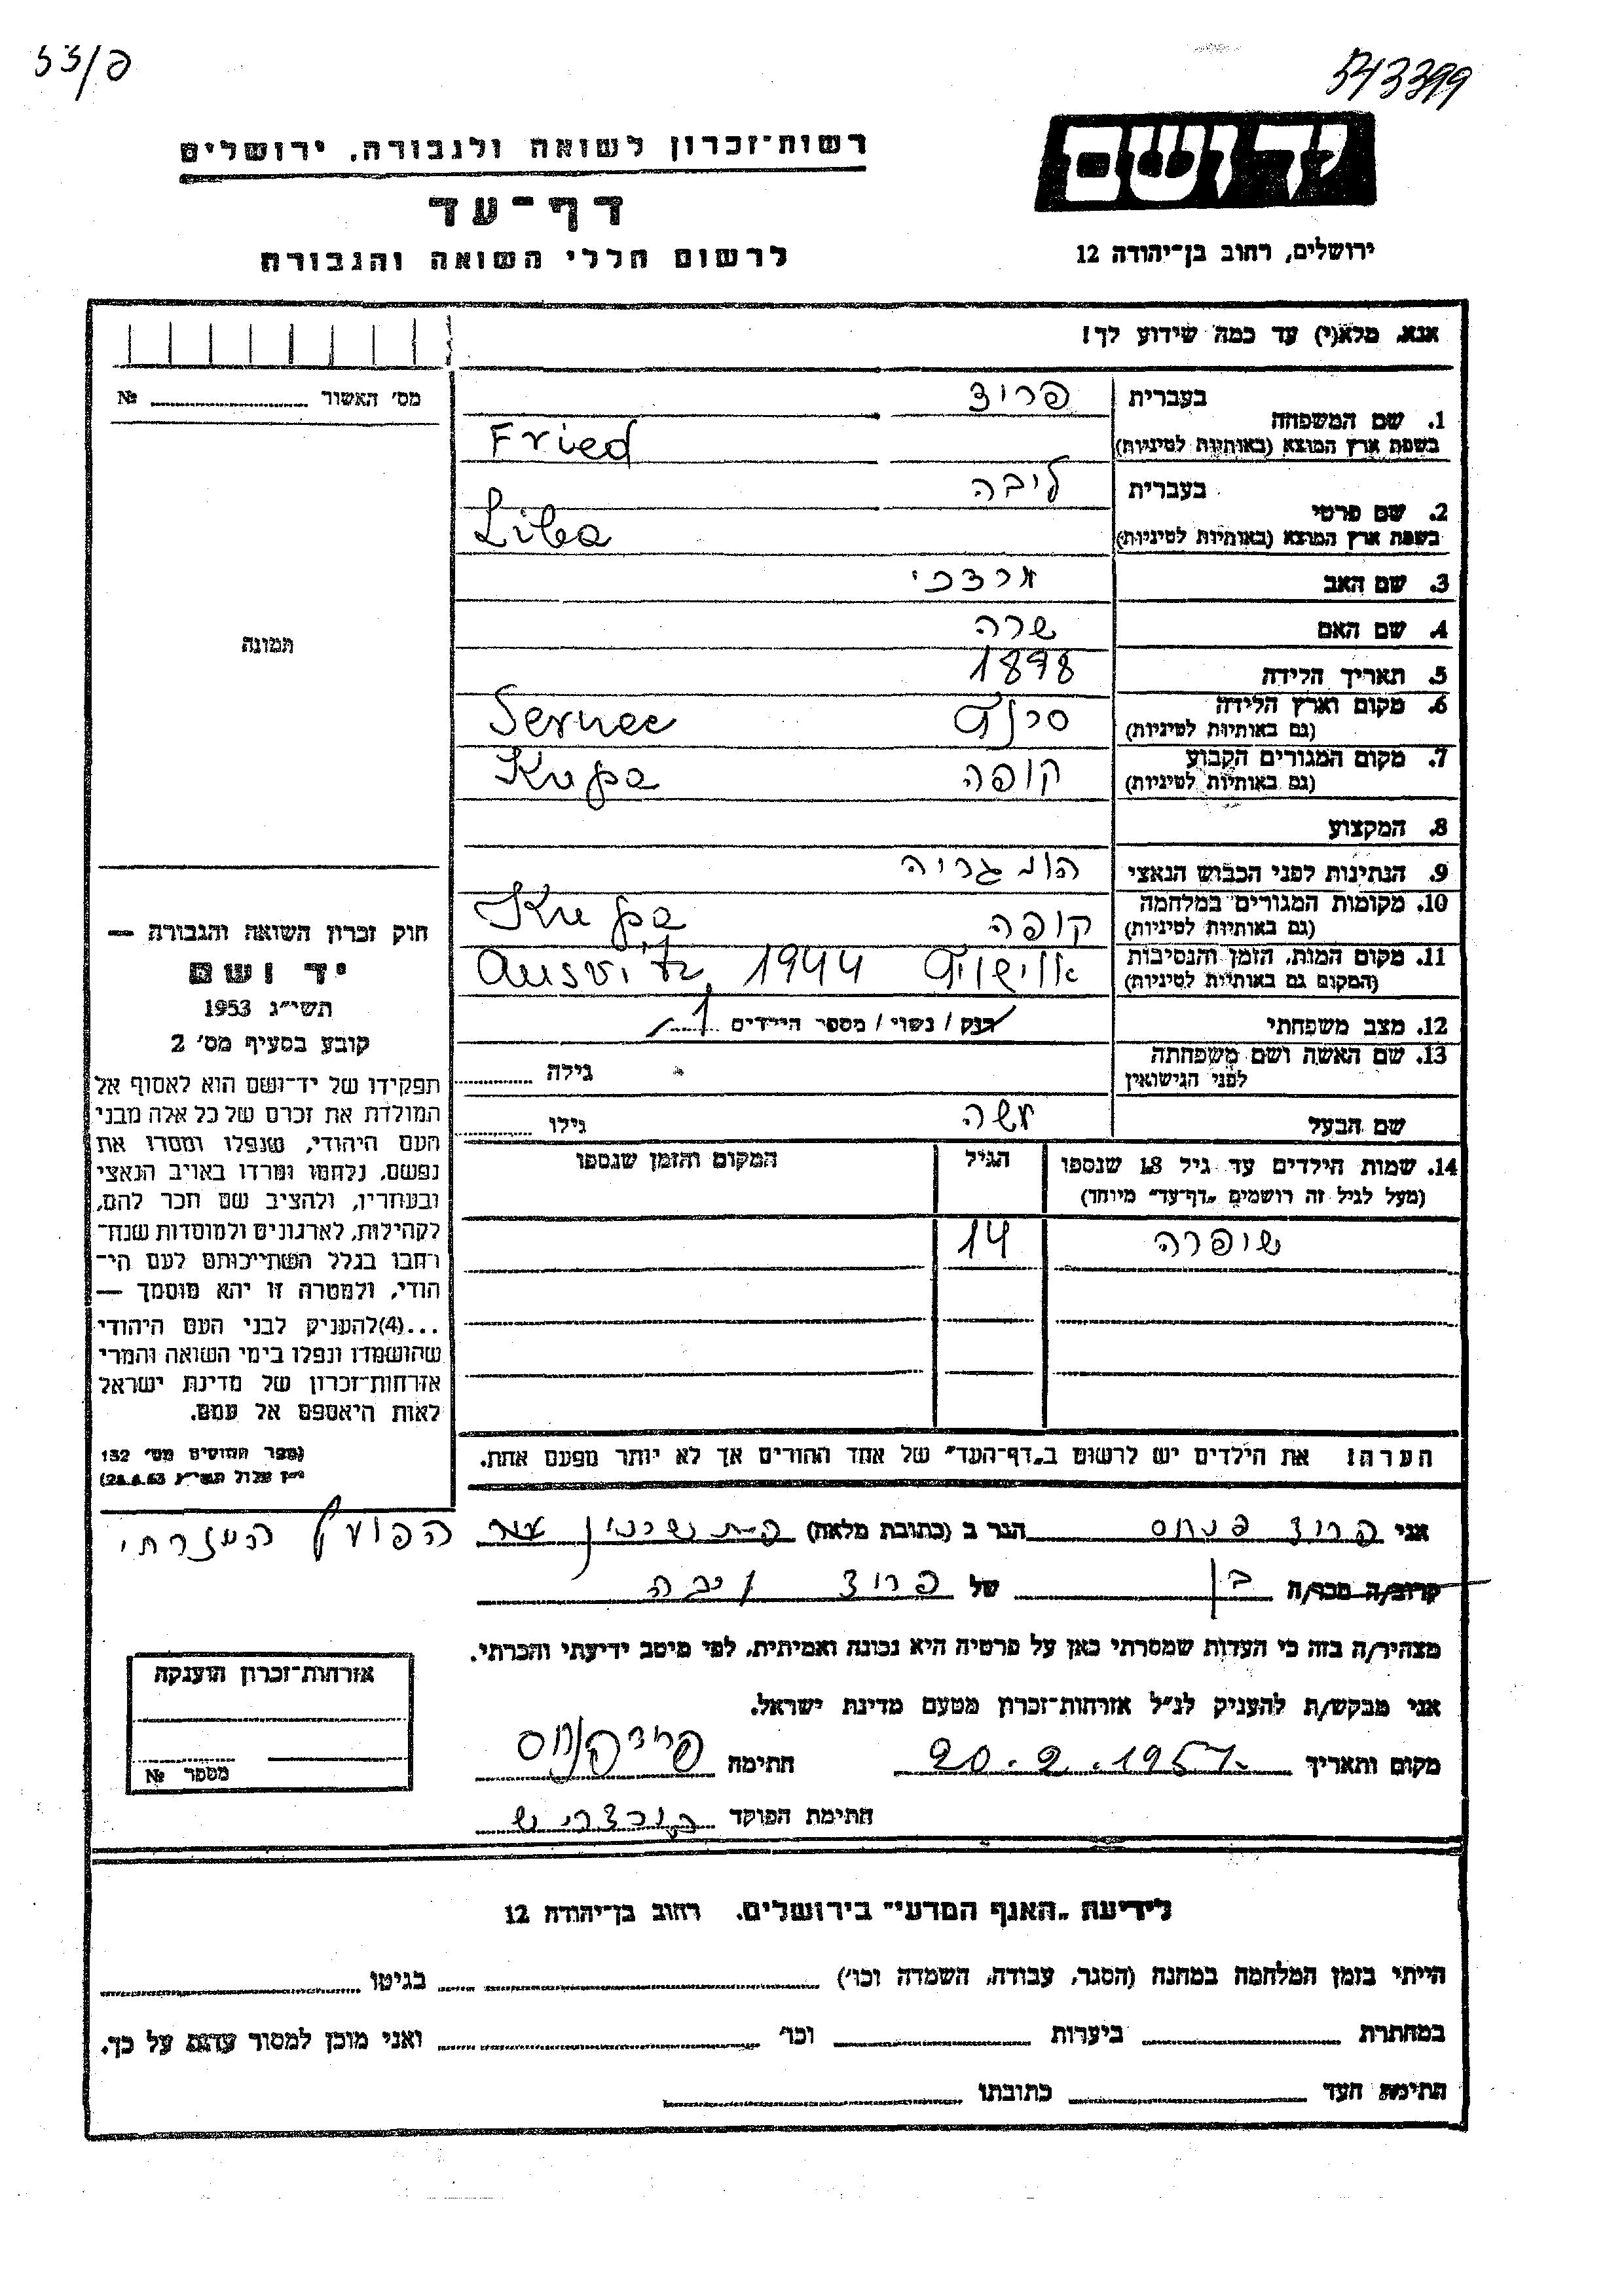 פ/33
543399
יד ושם
ירושלים, רחוב בן־יהודה 12
רשות־זכרון לשואה ולגבורה, ירושלים
דף־עד
לרשום חללי השואה והגבורה
אנא, מלא(י) עד כמה שידוע לך!
1. שם המשפחה בעברית פריד
בשפת ארץ המוצא (באותיות לטיניות) Fried
2. שם פרטי בעברית ליבה
בשפת ארץ המוצא (באותיות לטיניות) Liba
3. שם האב מרדכי
4. שם האם שרה
5. תאריך הלידה 1898
6. מקום וארץ הלידה
(גם באותיות לטיניות) Sernee
7. מקום המגורים הקבוע
(גם באותיות לטיניות) קופה Kupa
8. המקצוע
9. הנתינות לפני הכבוש הנאצי הונגריה
10. מקומות המגורים במלחמה
(גם באותיות לטיניות) קופה Kupa
11. מקום המות, הזמן והנסיבות
(המקום גם באותיות לטיניות) אוישויץ Ausvitz, 1944
12. מצב משפחתי רנק / נשוי / מספר הילדים 1
13. שם האשה ושם משפחתה
לפני הנישואין גילה
שם הבעל משה גילו
14. שמות הילדים עד גיל 18 שנספו הגיל המקום והזמן שנספו
(מעל לגיל זה רושמים "דף־עד" מיוחד)
שופרה 14
הערה: את הילדים יש לרשום ב"דף־העד" של אחד ההורים אך לא יותר מפעם אחת.
מס' האשור №
תמונה
חוק זכרון השואה והגבורה —
יד ושם
תשי"ג 1953
קובע בסעיף מס' 2
תפקידו של יד־ושם הוא לאסוף אל
המולדת את זכרם של כל אלה מבני
העם היהודי, שנפלו ומסרו את
נפשם, נלחמו ומרדו באויב הנאצי
ובעוזריו, ולהציב שם וזכר להם,
לקהילות, לארגונים ולמוסדות שנח־
רבו בגלל השתייכותם לעם הי־
הודי, ולמטרה זו יהא מוסמך —
...(4)להעניק לבני העם היהודי
שהושמדו ונפלו בימי השואה והמרי
אזרחות־זכרון של מדינת ישראל
לאות היאספם אל עמם.
(ספר החוקים מס' 132
י"ז אלול תשי"ג 28.8.53)
אני פריד פנחס הגר ב (כתובת מלאה) הפועל המזרחי
קרוב/ה מכר/ה בן של פריד ליבה
מצהיר/ה בזה כי העדות שמסרתי כאן על פרטיה היא נכונה ואמיתית, לפי מיטב ידיעתי והכרתי.
אני מבקש/ת להעניק לנ"ל אזרחות־זכרון מטעם מדינת ישראל.
מקום ותאריך 20.2.1957 חתימה פריד פנחס
חתימת הפוקד
אזרחות־זכרון הוענקה
מספר №
לידיעת "האגף המדעי" בירושלים, רחוב בן־יהודה 12
הייתי בזמן המלחמה במחנה (הסגר, עבודה, השמדה וכו') בגיטו
במחתרת ביערות וכו' ואני מוכן למסור עדות על כך.
חתימת העד כתובתו